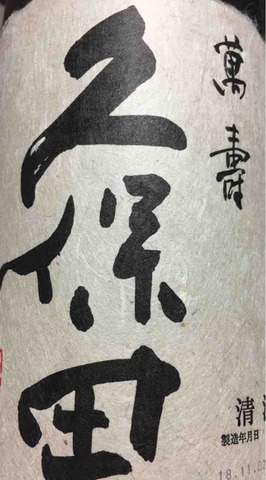 萬壽
久保田
清
製造年月日
18.11.02